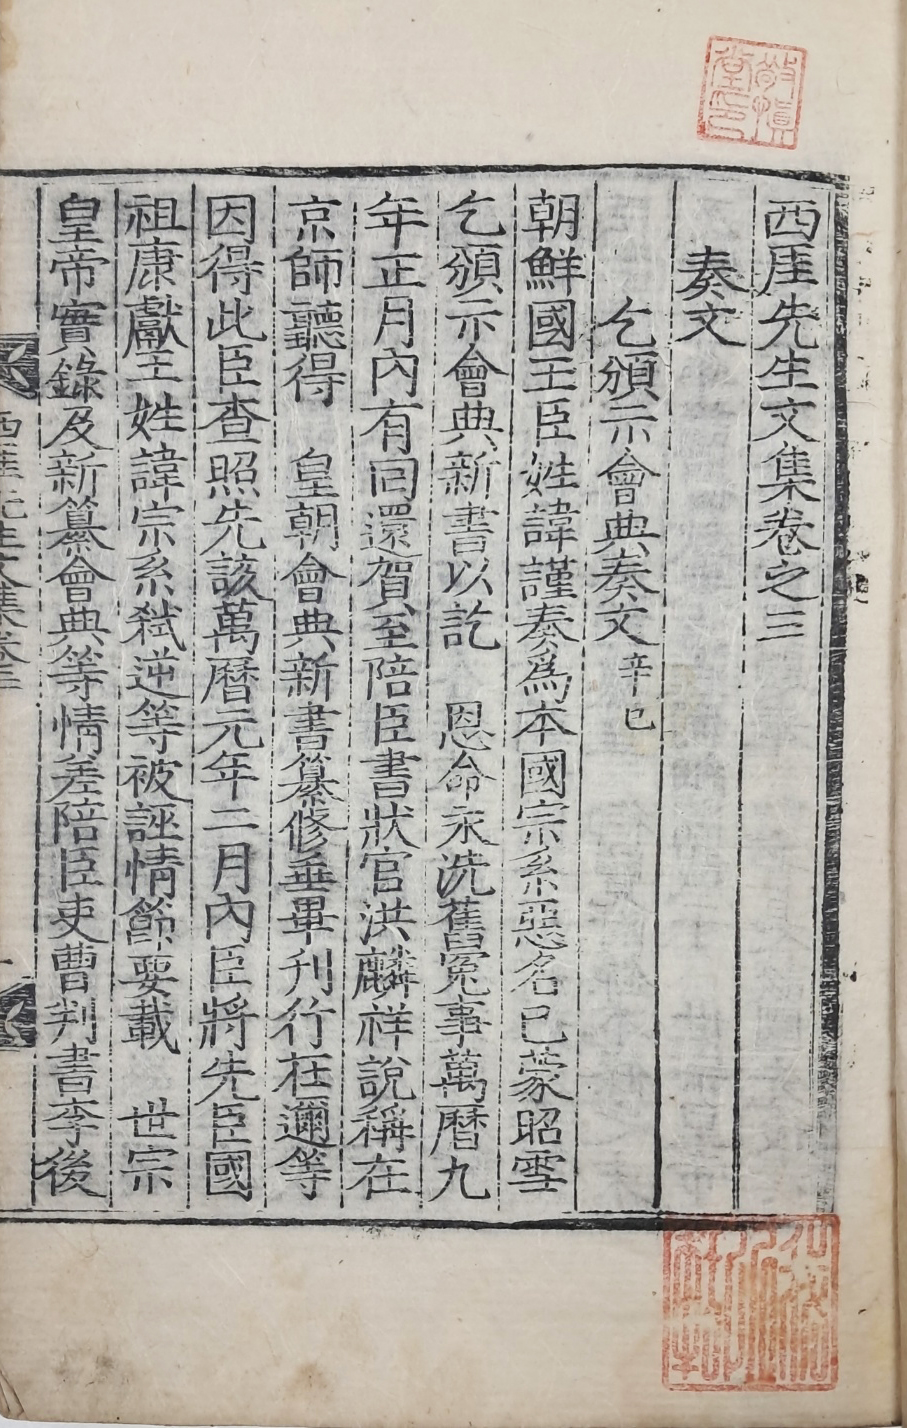 西厓先生文集卷之三
奏文
乞頒示會典奏文 辛巳
朝鮮國王臣姓諱謹奏爲本國宗系惡名已蒙昭雪
乞頒示會典新書以訖 恩命永洗舊冤事萬曆九
年正月內有回還賀至陪臣書狀官洪麟祥說稱在
京師聽得 皇朝會典新書纂修垂畢刊行在邇等
因得此臣查照先該萬曆元年二月內臣將先臣國
祖康獻王姓諱宗系弑逆等被誣情節要載 世宗
皇帝實錄及新纂會典等情差陪臣吏曹判書李後
西厓先生文集卷三
一
敬慎堂印